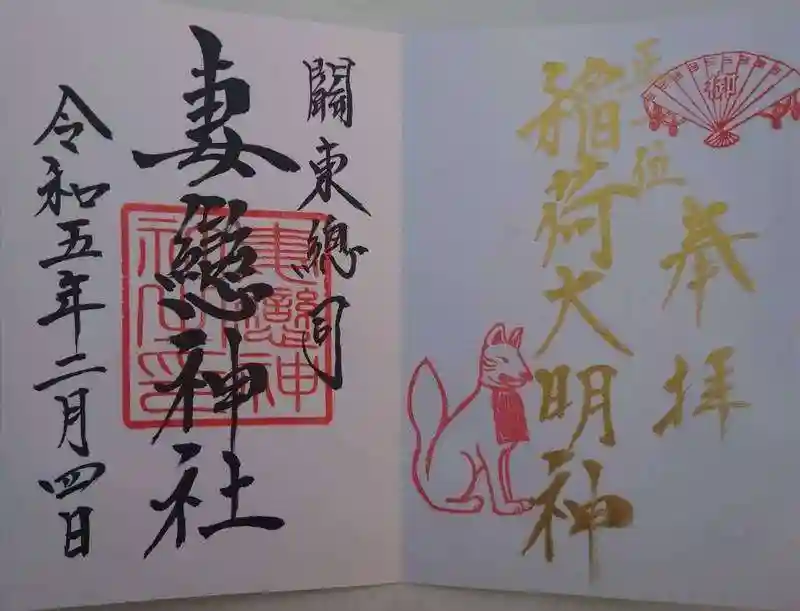 奉拝
正一位
稲荷大明神
御
關東總司
妻戀神社
令和五年二月四日